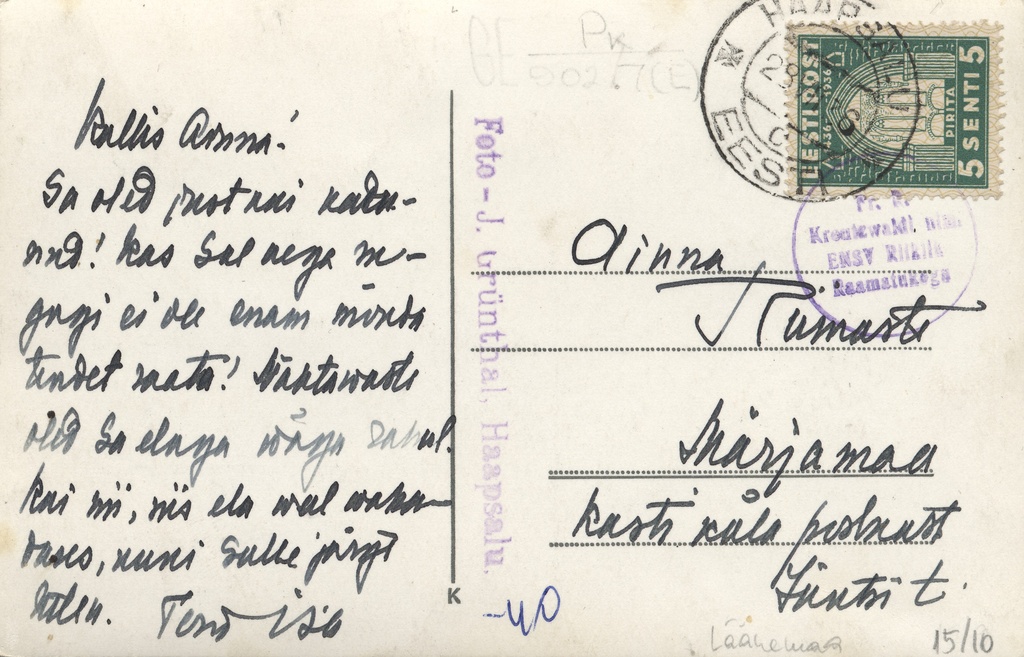 Kallis Ainna!
Sa oled just kui kadu-
nud! Kas Sul aega mi-
gagi ei ole enam mõnda
teadet saata! Nähtawasti
oled Sa elaga wäga rahul.
Kai nii, siis ela wal waba-
duses, kuni Sulle järgi
tulen. Terw Isa
Foto - J. Grünthal, Haapsalu.
K
40
Pk
902.7(E)
HAAPSALU
EESTI
EESTI POST
1936
PIRITA
5 SENTI 5
Fr. R.
Kreutzwaldi nim.
ENSV Riiklik
Raamatukogu
Ainna
Kumaste
Märjamaa
Kasti küla postkast
Jüntsi t.
Läänemaa
15/10